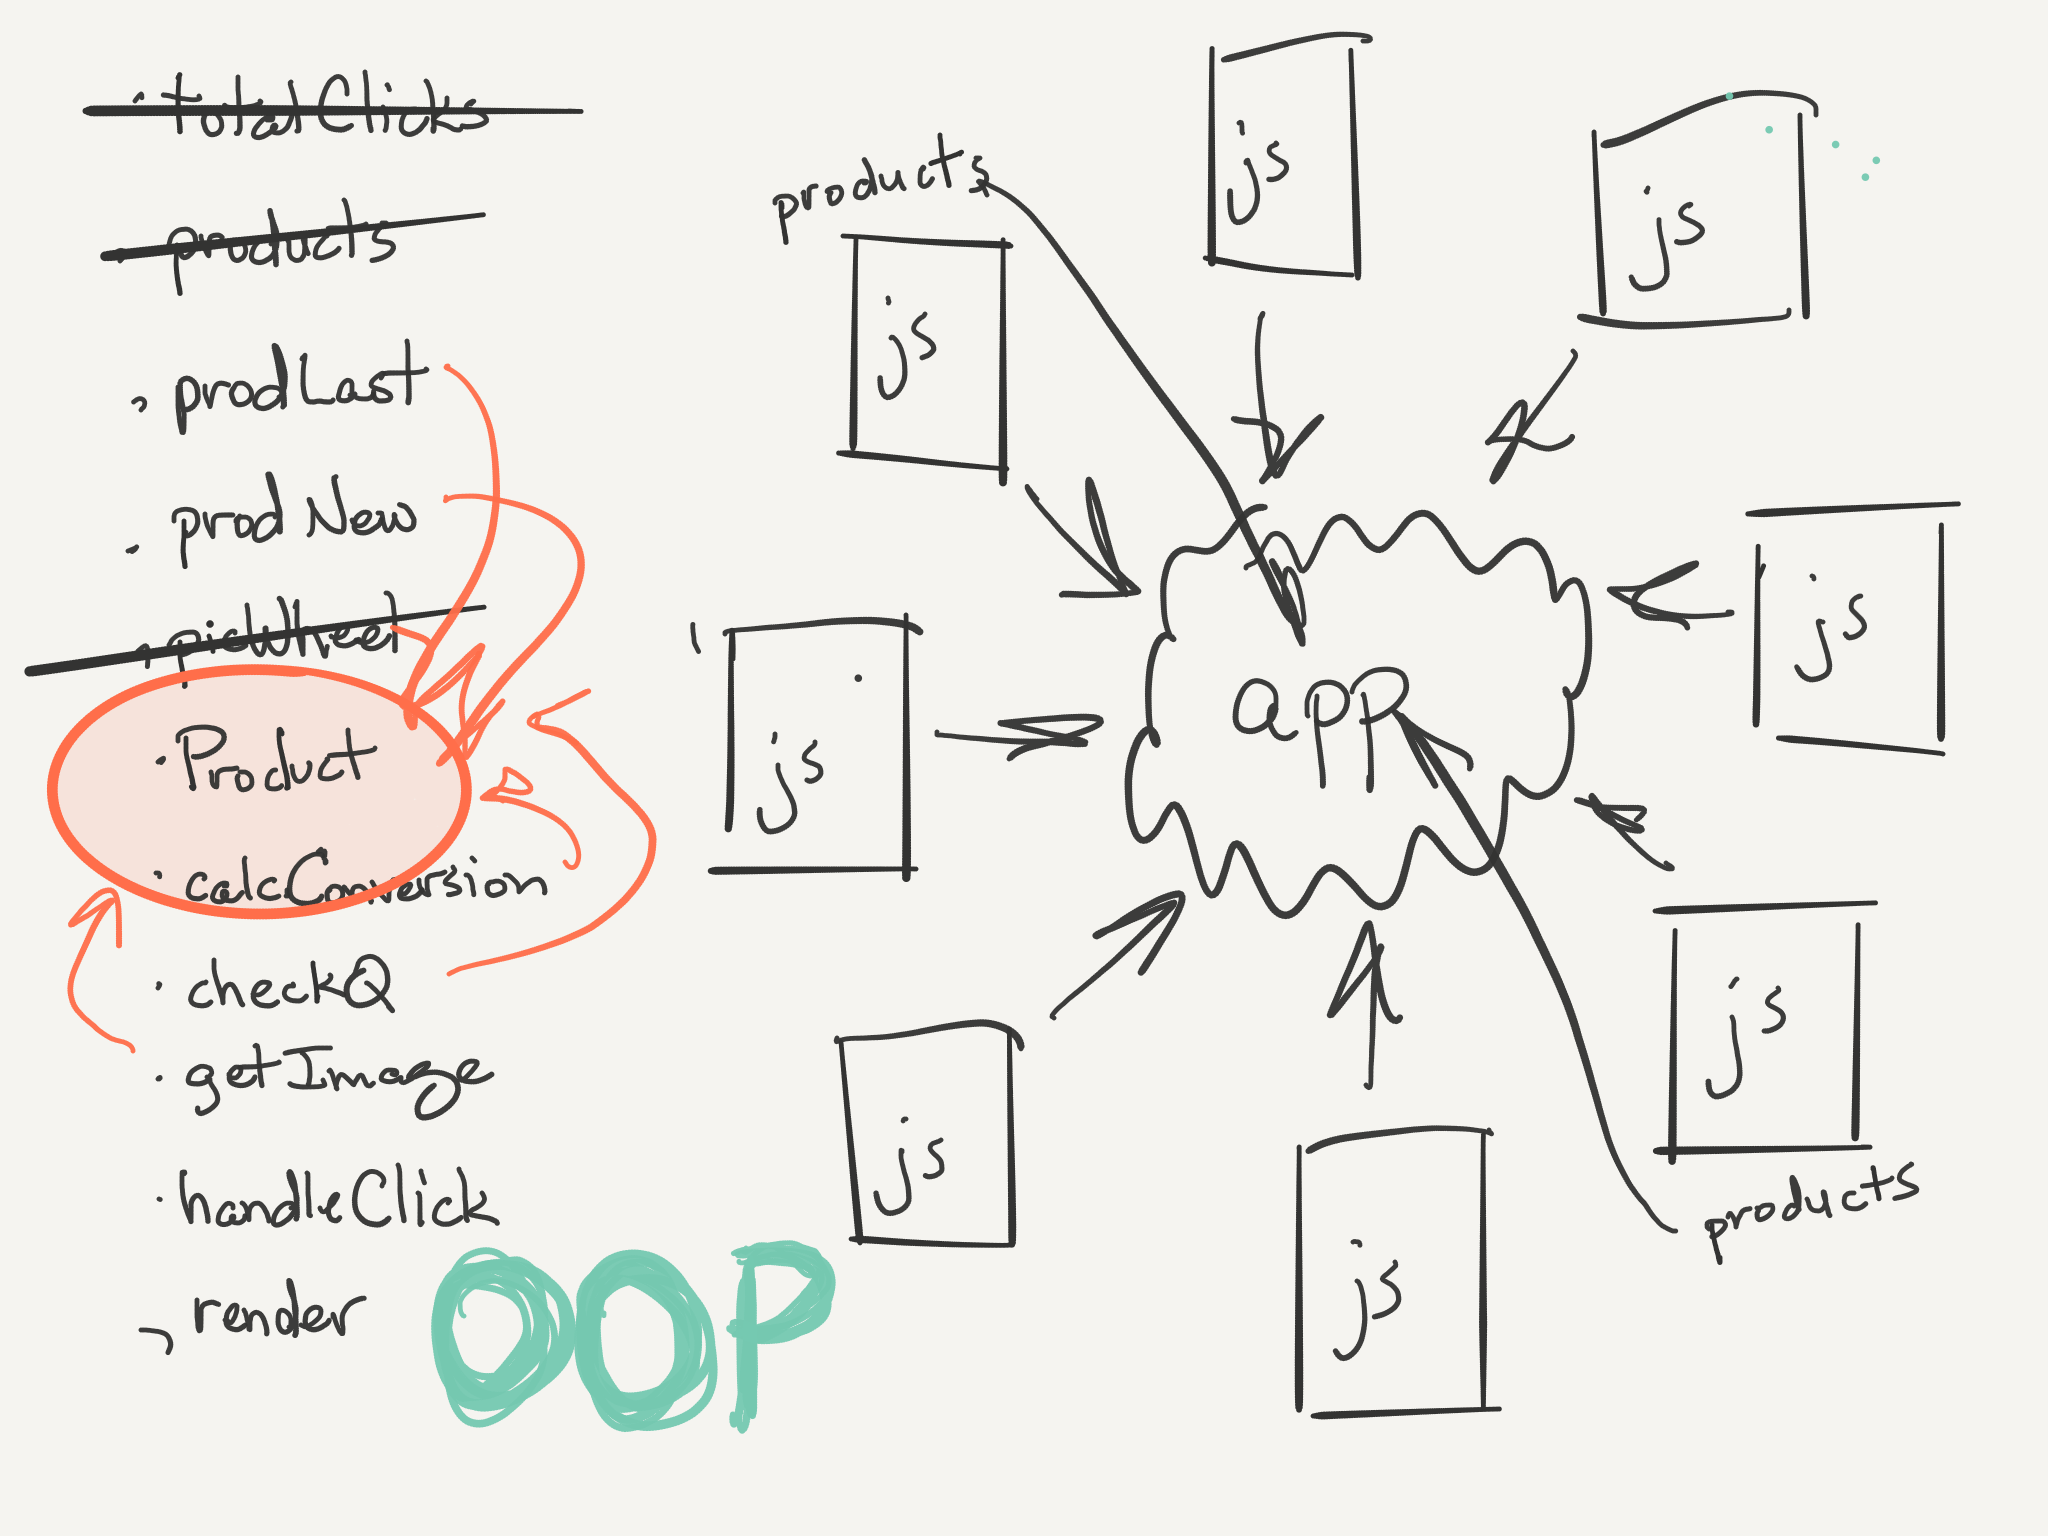 · totalClicks
· products
· prodLast
· prodNew
· picWheel
· Product
· calcConversion
· checkQ
· getImage
· handleClick
· render
OOP
products
js
js
js
js
js
app
js
js
js
products